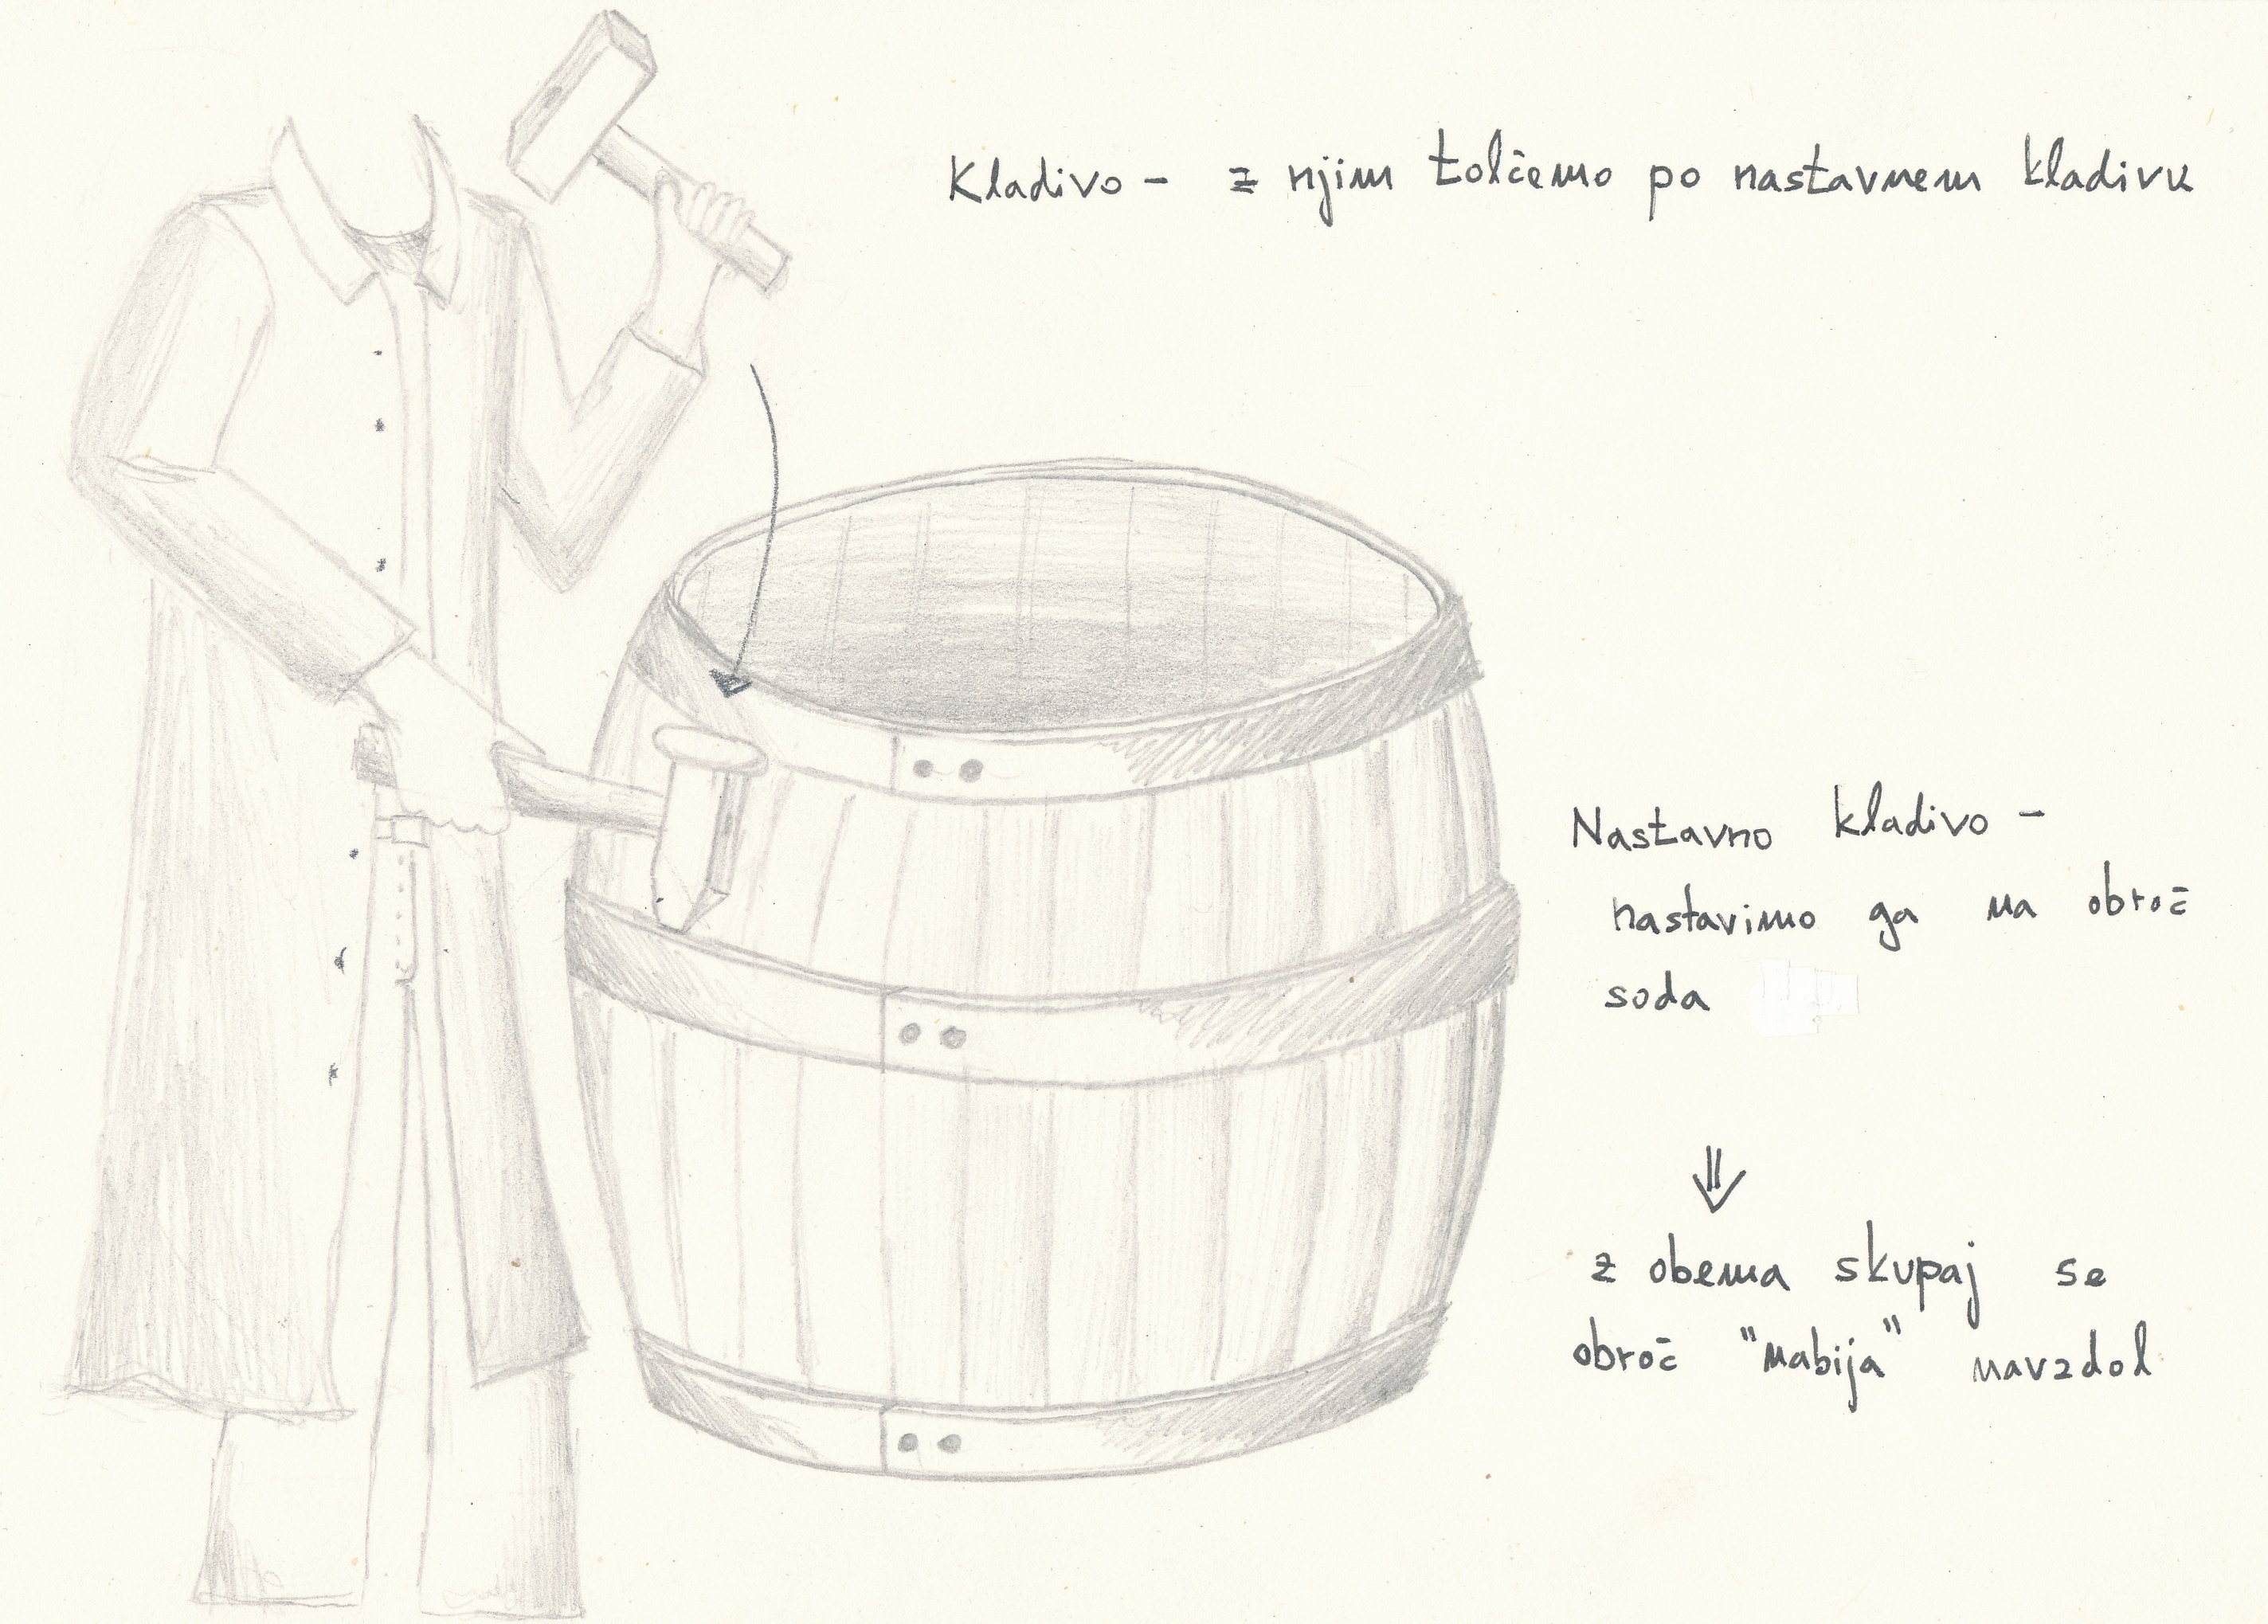 Kladivo - z njim tolčemo po nastavnem kladivu
Nastavno kladivo -
nastavimo ga na obroč
soda
⇓
z obema skupaj se
obroč "nabija" navzdol